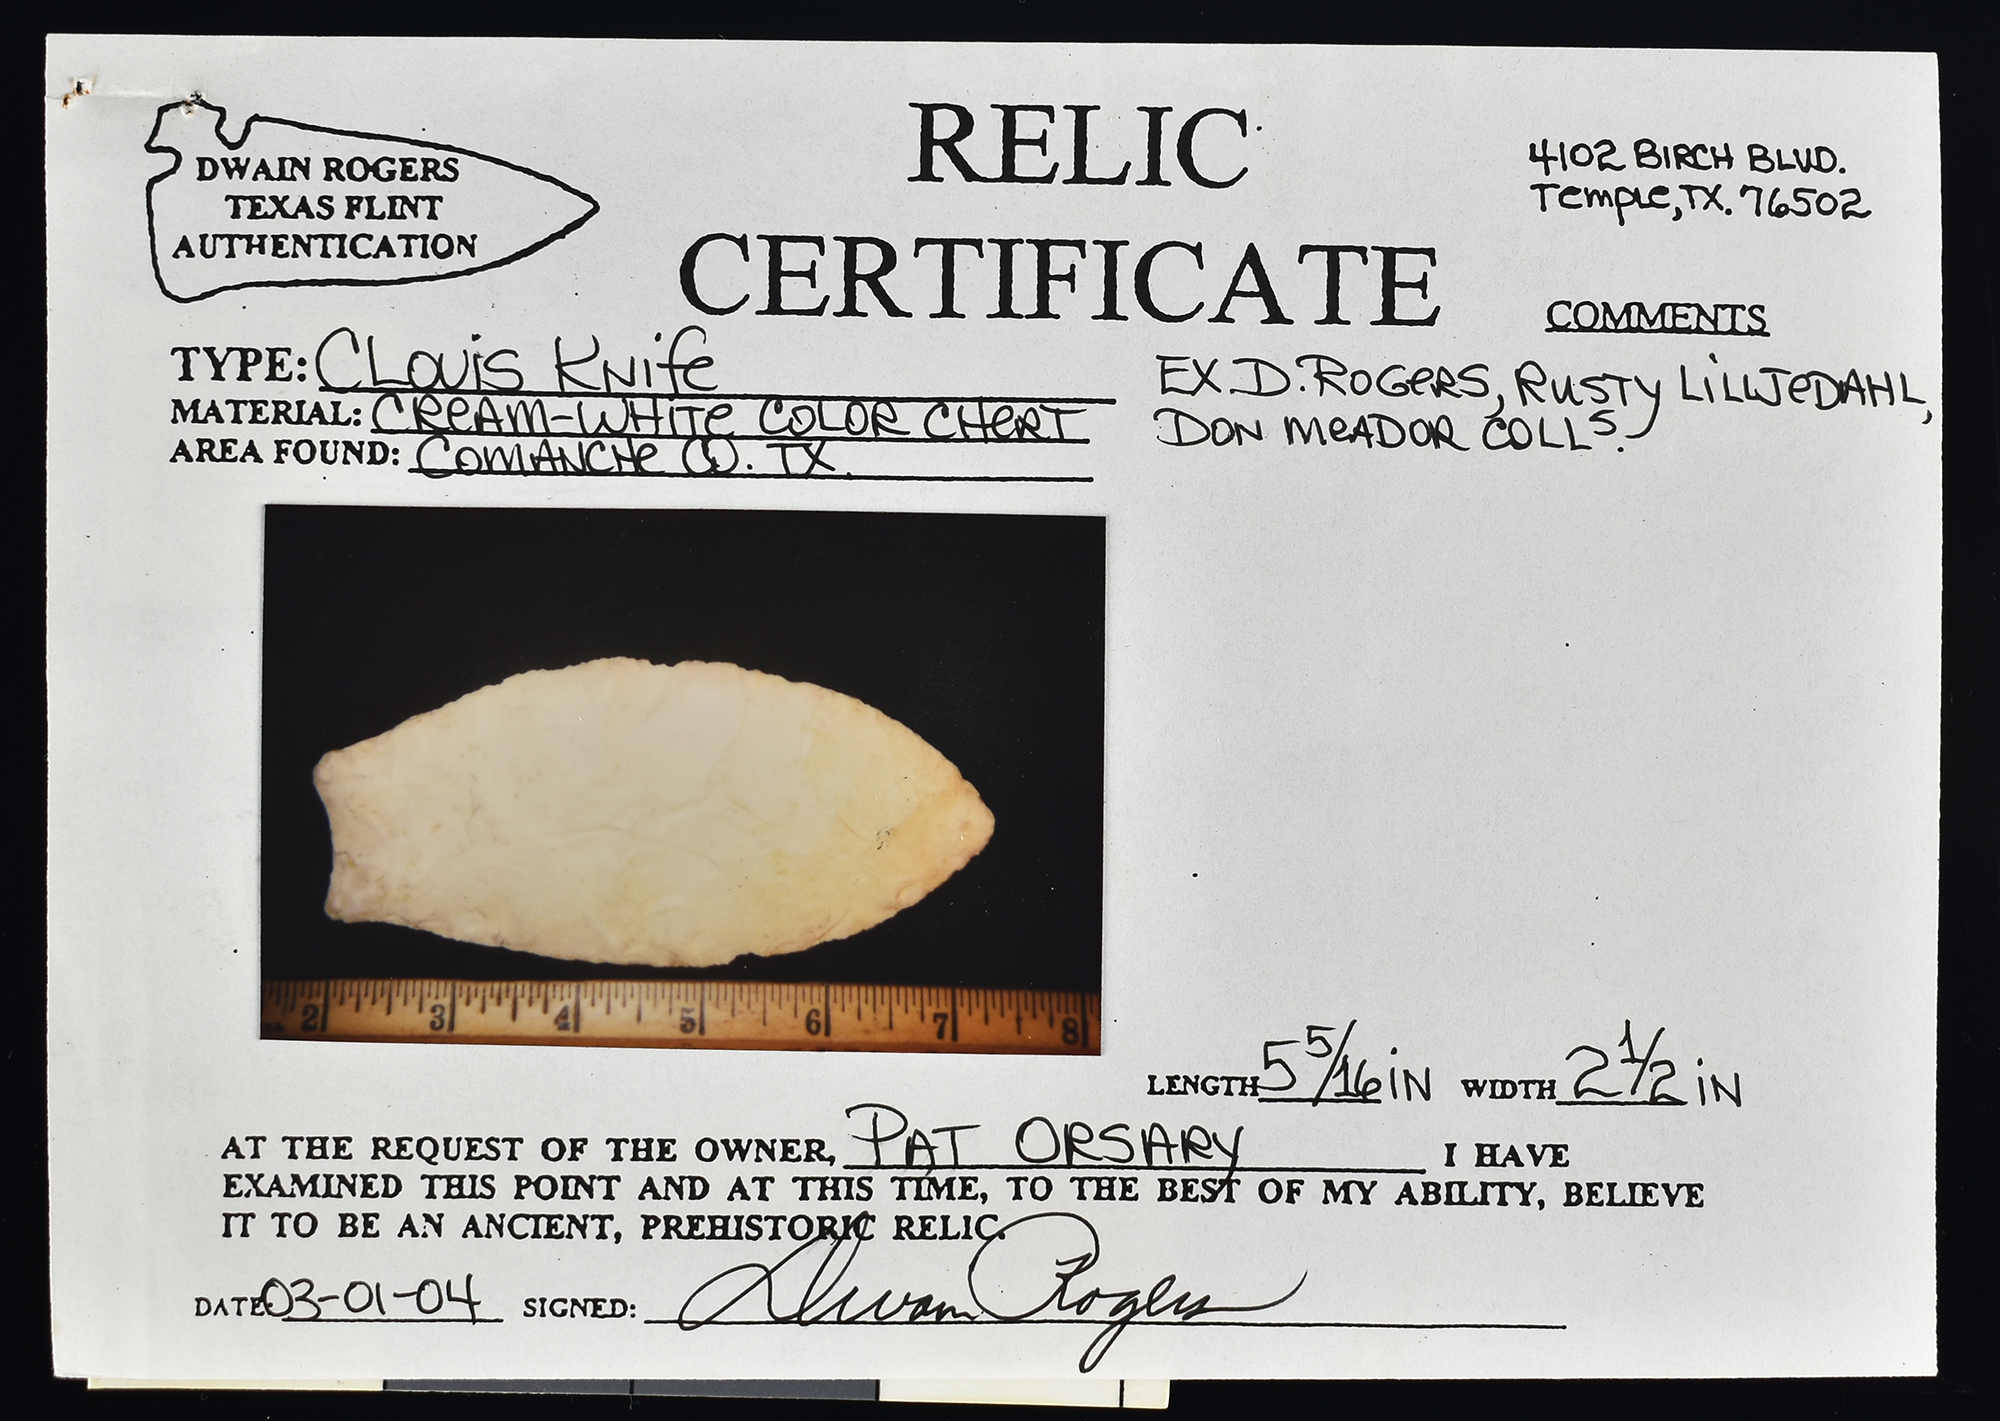 RELIC
CERTIFICATE
DWAIN ROGERS
TEXAS FLINT
AUTHENTICATION
4102 BIRCH BLVD.
Temple, TX. 76502
COMMENTS
EX. D. ROGERS, RUSTY LILLJEDAHL,
DON MEADOR COLLS.
TYPE: CLOVIS KNIFE
MATERIAL: CREAM-WHITE COLOR CHERT
AREA FOUND: COMANCHE CO. TX.
2 3 4 5 6 7 8
LENGTH 5 5/16 IN WIDTH 2 1/2 IN
AT THE REQUEST OF THE OWNER, PAT ORSARY I HAVE
EXAMINED THIS POINT AND AT THIS TIME, TO THE BEST OF MY ABILITY, BELIEVE
IT TO BE AN ANCIENT, PREHISTORIC RELIC.
DATE 03-01-04 SIGNED: Dwain Rogers